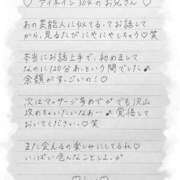 ♡ ダイネイン 30分のお兄さん ♡
あの芸能人に似てる、てお話して
から、見るたびにやにやしちゃう♡笑
本当にお話上手で、初めまして
なのに120分あっという間でした♪
余韻がすっごいの!♡
次はマッサージ多めで♂でも沢山
攻めちゃいたいなぁ〜♪覚悟して
おいてください♡笑
また会えるの楽しみにしてるね♡
いっぱい色んなことしよ